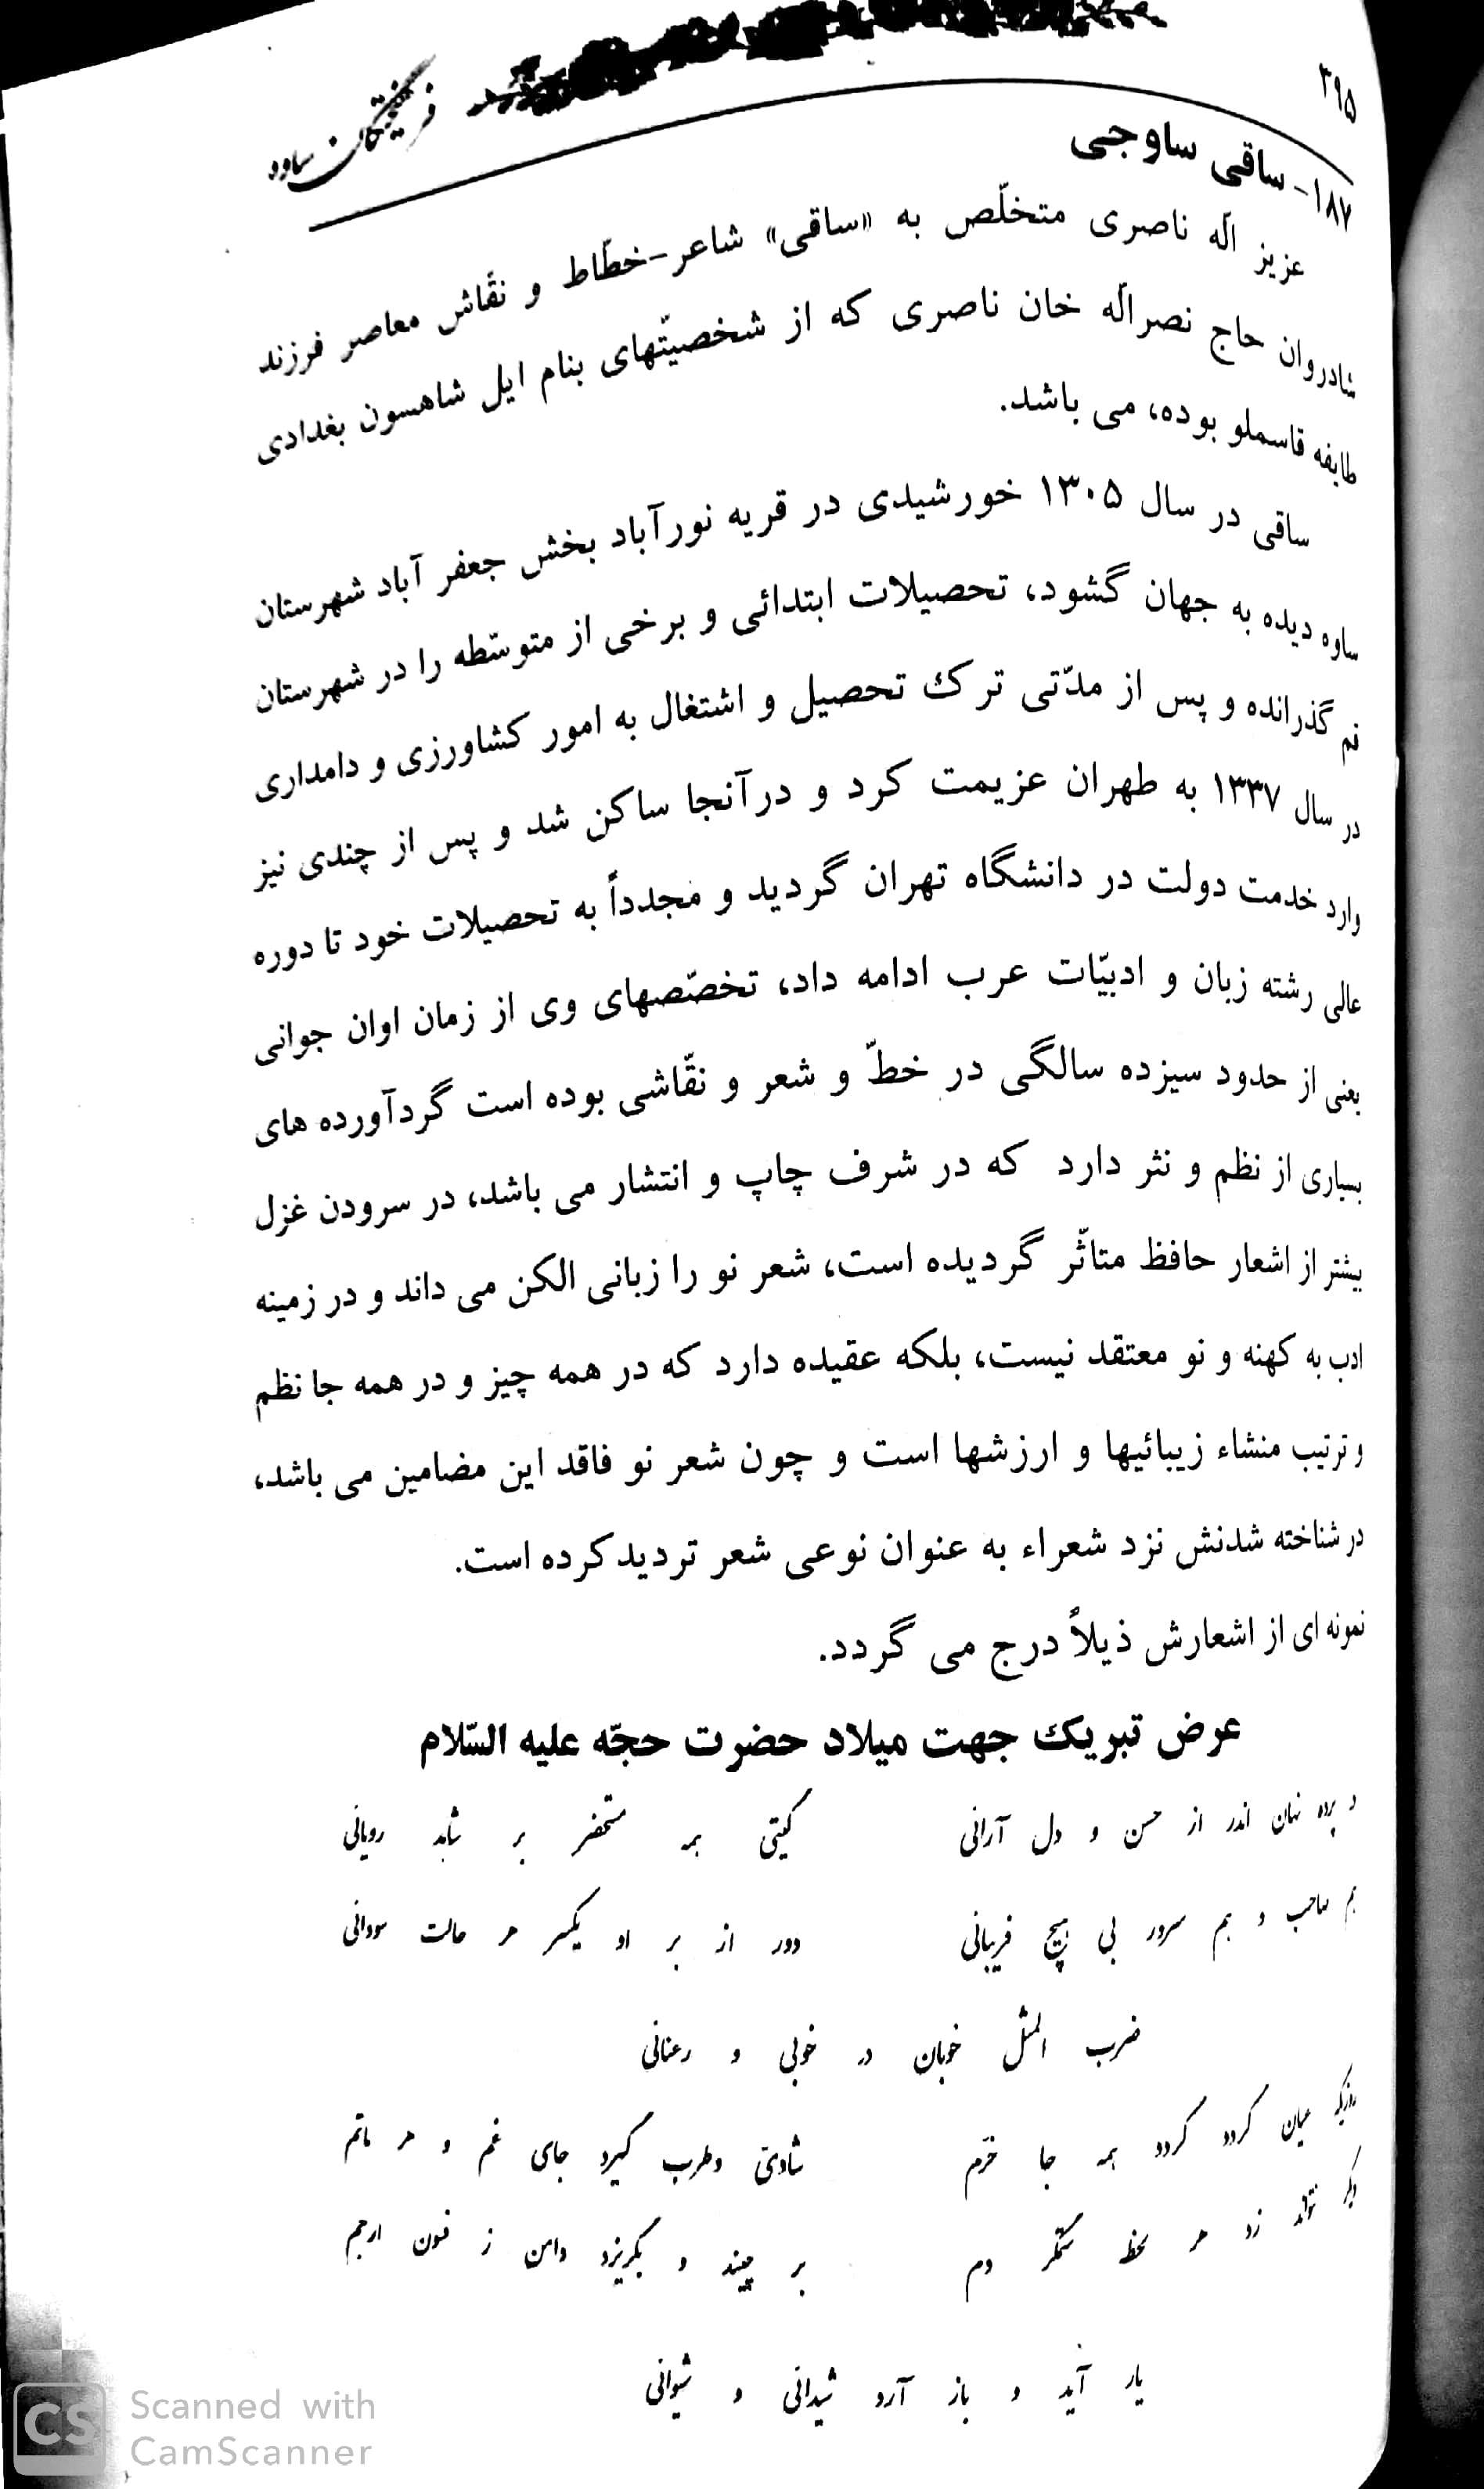 ۳۹۵
فرهیختگان ساوه
۱۸۷- ساقی ساوجی
عزیز الّه ناصری متخلّص به «ساقی» شاعر-خطّاط و نقّاش معاصر فرزند
شادروان حاج نصرالّه خان ناصری که از شخصیّتهای بنام ایل شاهسون بغدادی
طایفه قاسملو بوده، می باشد.
ساقی در سال ۱۳۰۵ خورشیدی در قریه نورآباد بخش جعفر آباد شهرستان
ساوه دیده به جهان گشود، تحصیلات ابتدائی و برخی از متوسّطه را در شهرستان
قم گذرانده و پس از مدّتی ترک تحصیل و اشتغال به امور کشاورزی و دامداری
در سال ۱۳۳۷ به طهران عزیمت کرد و درآنجا ساکن شد و پس از چندی نیز
وارد خدمت دولت در دانشگاه تهران گردید و مجدداً به تحصیلات خود تا دوره
عالی رشته زبان و ادبیّات عرب ادامه داد، تخصّصهای وی از زمان اوان جوانی
یعنی از حدود سیزده سالگی در خطّ و شعر و نقّاشی بوده است گردآورده های
بسیاری از نظم و نثر دارد که در شرف چاپ و انتشار می باشد، در سرودن غزل
بیشتر از اشعار حافظ متاثّر گردیده است، شعر نو را زبانی الکن می داند و در زمینه
ادب به کهنه و نو معتقد نیست، بلکه عقیده دارد که در همه چیز و در همه جا نظم
و ترتیب منشاء زیبائیها و ارزشها است و چون شعر نو فاقد این مضامین می باشد،
در شناخته شدنش نزد شعراء به عنوان نوعی شعر تردید کرده است.
نمونه ای از اشعارش ذیلاً درج می گردد.
عرض تبریک جهت میلاد حضرت حجّه علیه السّلام
در پرده نهان اندر از حسن و دل آرائی گیتی همه مستحضر بر شاهد رویائی
هم صاحب و هم سرور بی هیچ فریبائی دور از بر او یکسر هر حالت سودائی
ضرب المثل خوبان در خوبی و رعنائی
عیان گردد گردد همه جا خرّم شادیّ و طرب گیرد جای غم و هر ماتم
دیگر نتواند زد هر لحظه ستمگر دم بر چیند و بگریزد دامن ز فسون ارجم
یار آید و باز آرد شیدائی و شیوائی
Scanned with
CamScanner